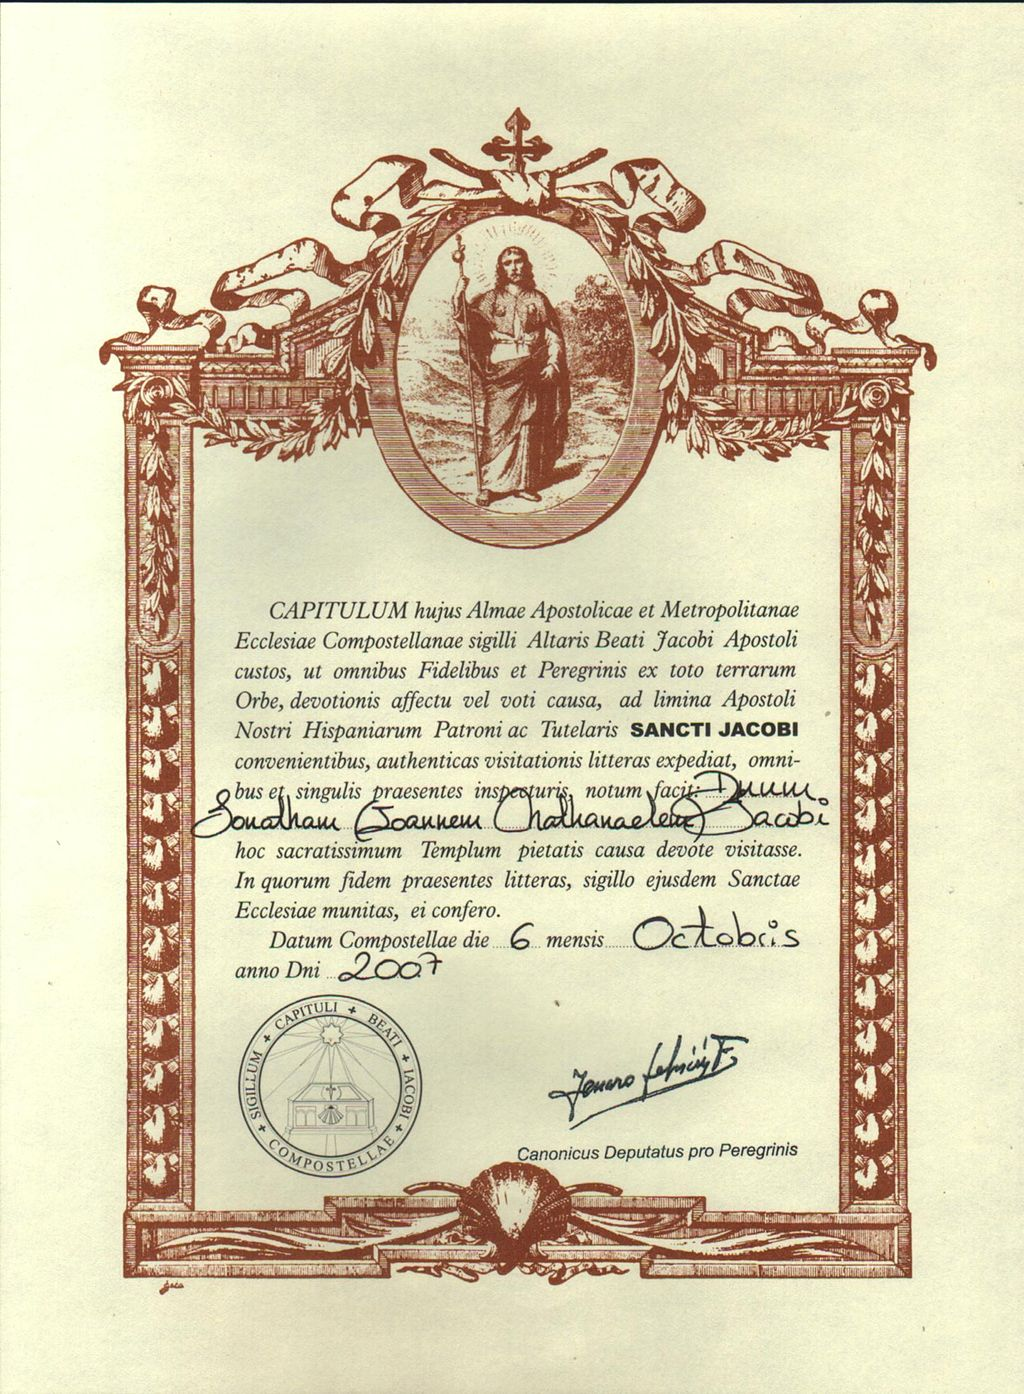 CAPITULUM hujus Almae Apostolicae et Metropolitanae
Ecclesiae Compostellanae sigilli Altaris Beati Jacobi Apostoli
custos, ut omnibus Fidelibus et Peregrinis ex toto terrarum
Orbe, devotionis affectu vel voti causa, ad limina Apostoli
Nostri Hispaniarum Patroni ac Tutelaris SANCTI JACOBI
convenientibus, authenticas visitationis litteras expediat, omni-
bus et singulis praesentes inspecturis, notum facit: Dnum
Jonatham (Joannem Nathanaelem) Jacobi
hoc sacratissimum Templum pietatis causa devote visitasse.
In quorum fidem praesentes litteras, sigillo ejusdem Sanctae
Ecclesiae munitas, ei confero.
Datum Compostellae die 6 mensis Octobris
anno Dni 2007
SIGILLUM + CAPITULI + BEATI + IACOBI + COMPOSTELLAE +
Jenaro
Canonicus Deputatus pro Peregrinis